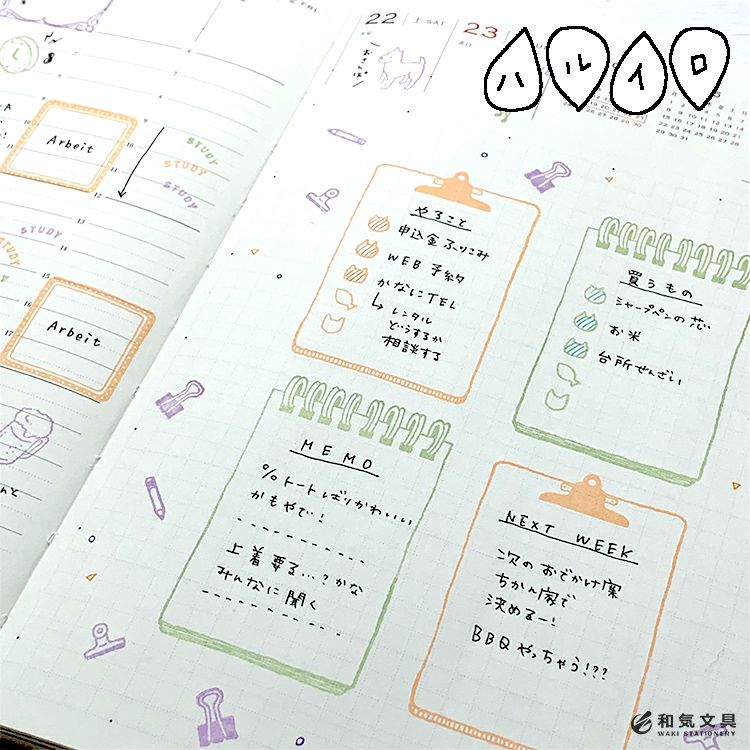 FRI
22
土 SAT
23
ハルイロ
おさんぽ
A
Arbeit
STUDY
STUDY
STUDY
STUDY
Arbeit
やること
申込金ふりこみ
WEB予約
かなにTEL
↳ レンタル
どうするか
相談する
買うもの
シャープペンの芯
お米
台所せんざい
MEMO
かもやで!
上着要る…?かな
みんなに聞く
NEXT WEEK
次のおでかけ案
ちかん家で
決めるー!
BBQやっちゃう!??
和気文具
WAKI STATIONERY